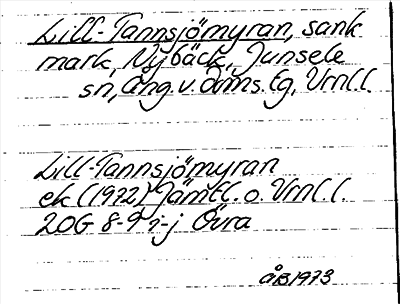 Lill-Tannsjömyran, sank
mark, Nybäck, Junsele
sn, Ång.v.dms.tg, Vrnl.l.
Lill-Tannsjömyran
ek (1972) Jämtl. o. Vrnl.l.
20G 8-9 i-j Övra
ÅB 1973